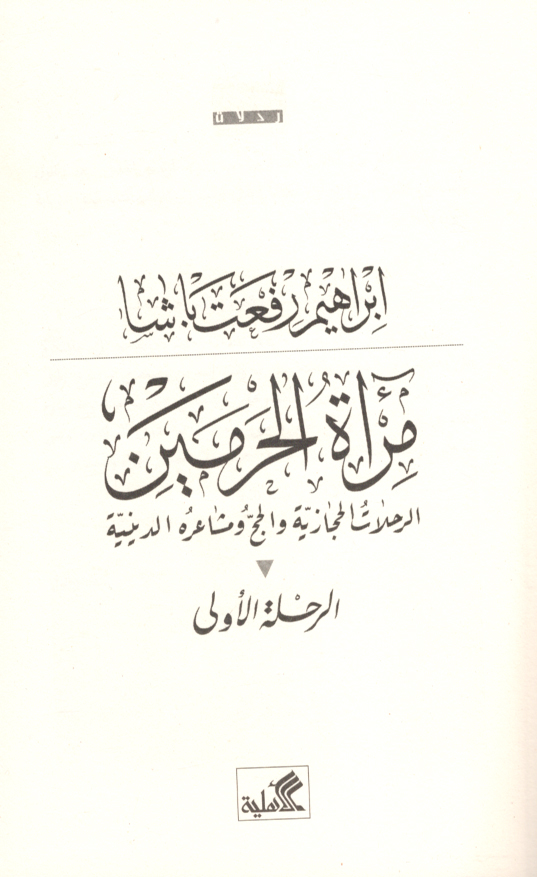 رحلات
إبراهيم رفعت باشا
مرآة الحرمين
الرحلات الحجازية والحج ومشاعره الدينية
الرحلة الأولى
الأهلية